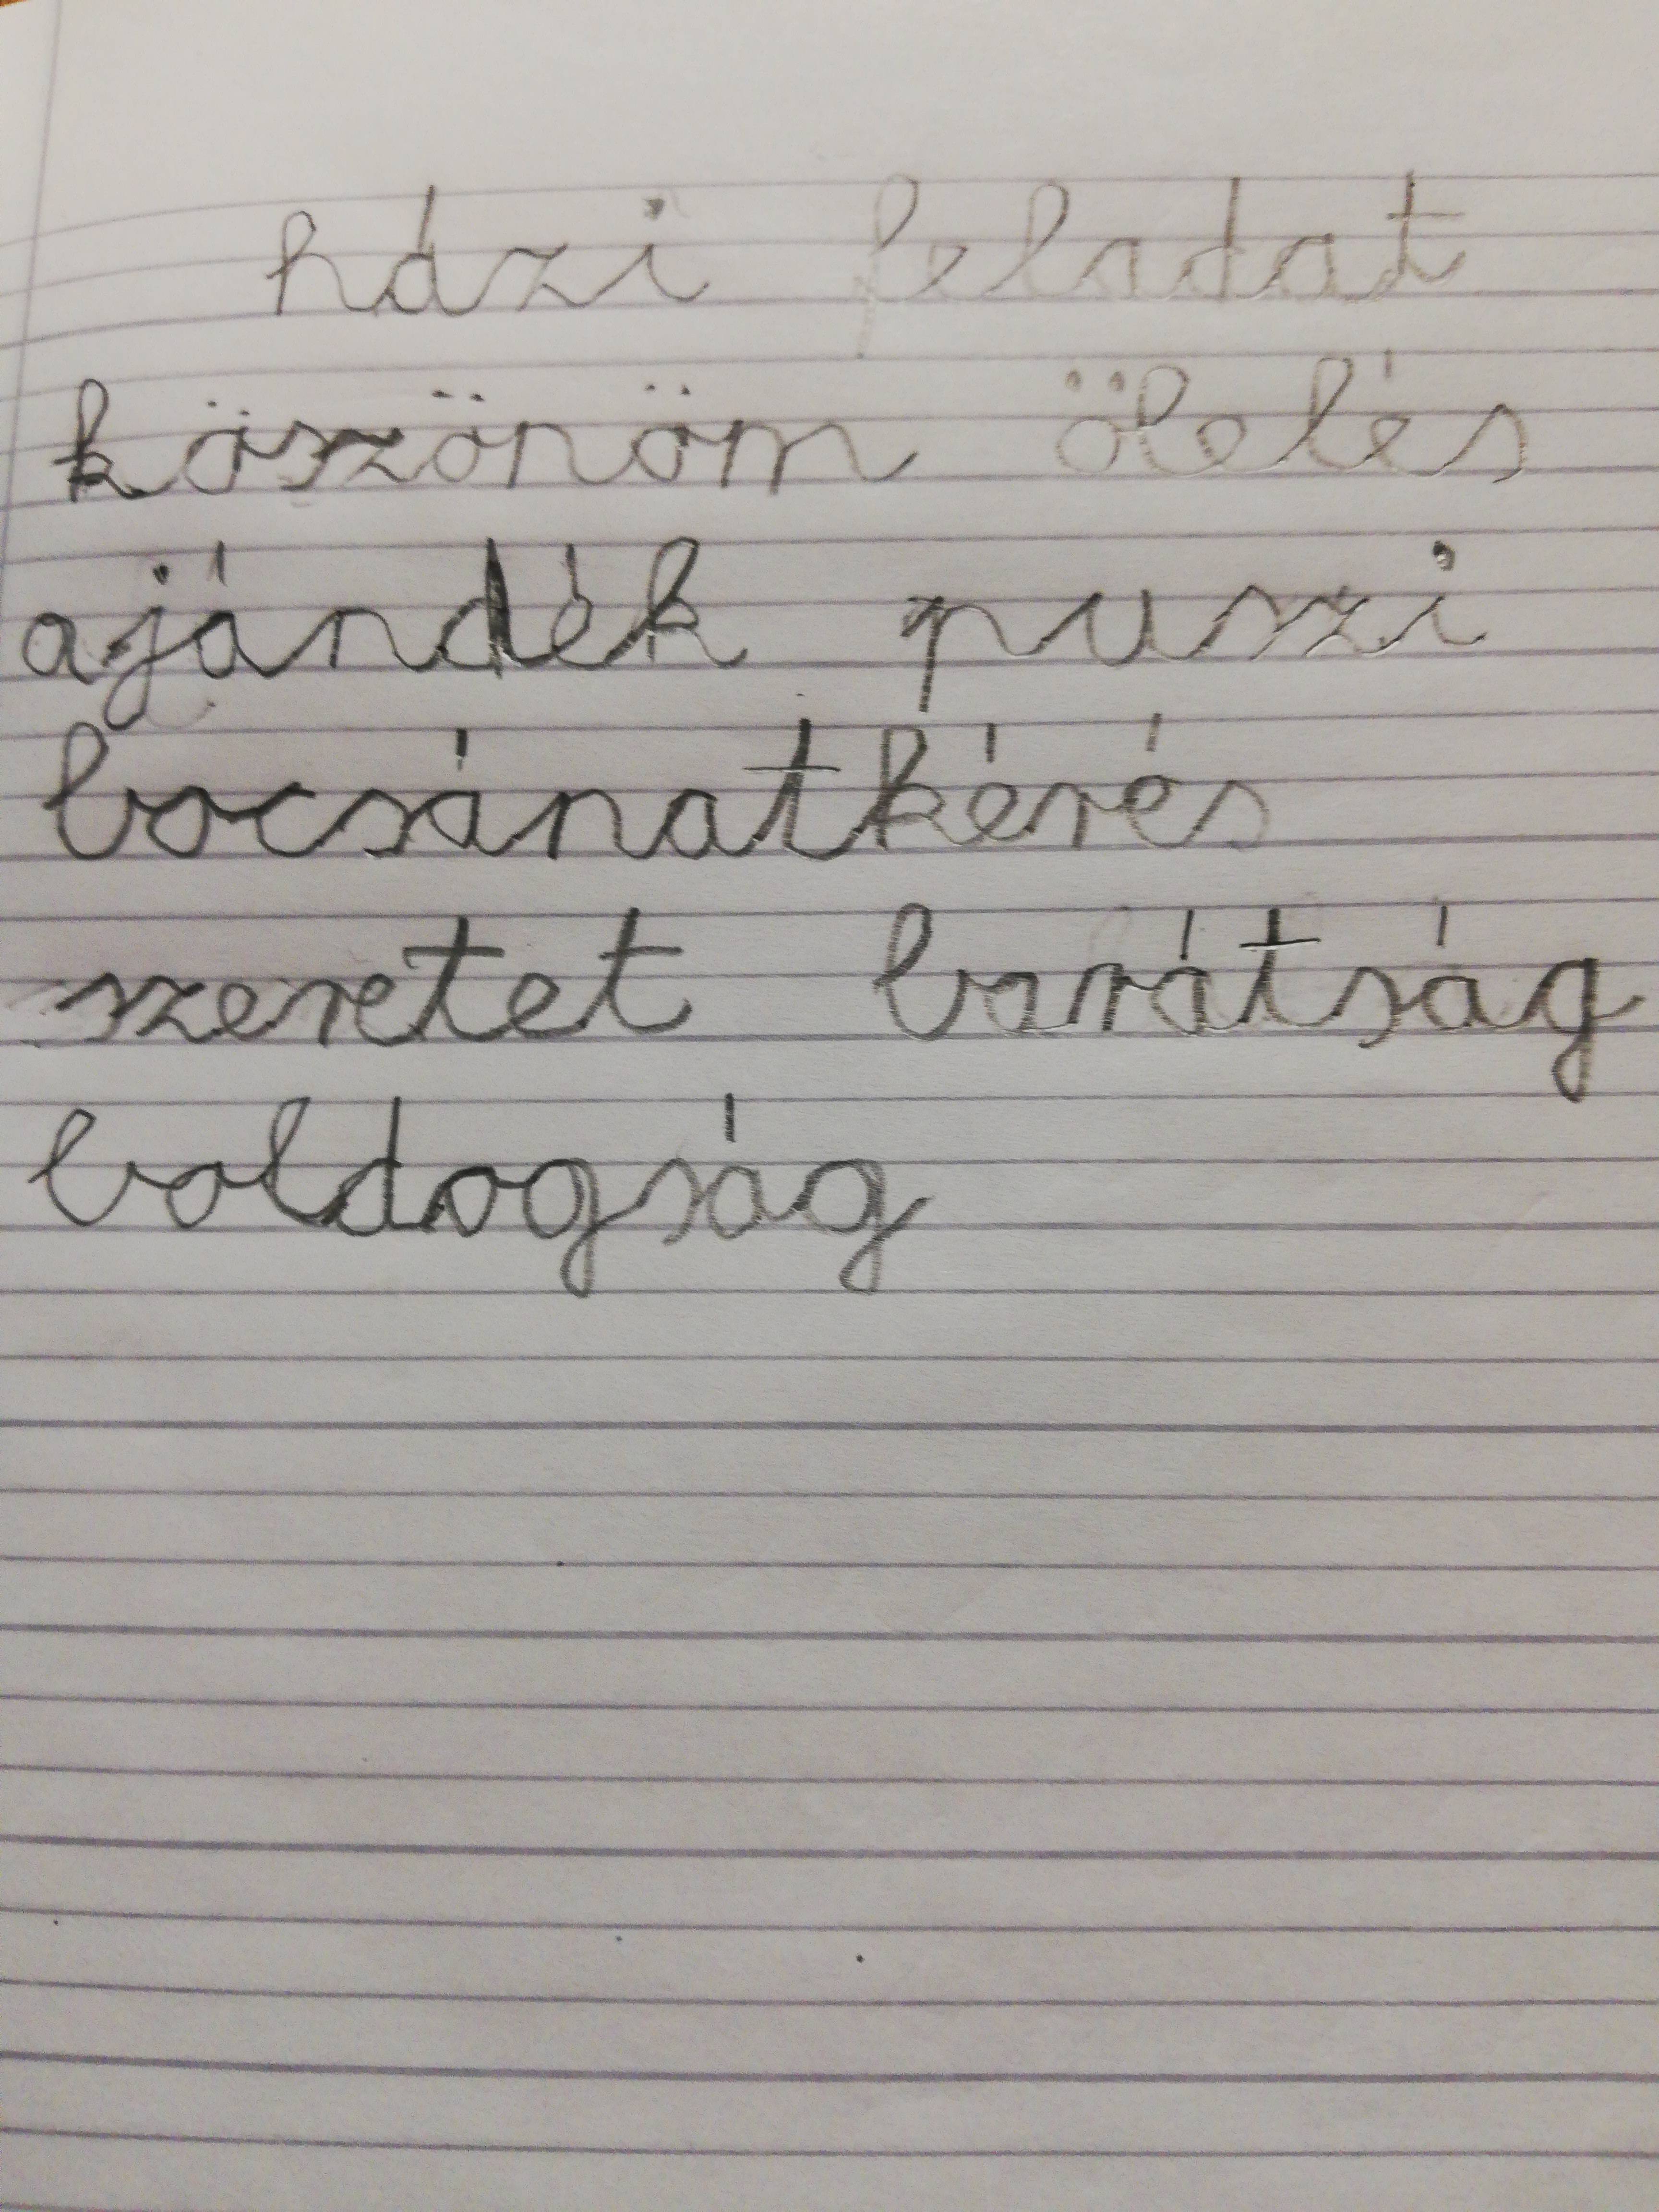 házi feladat
köszönöm ölelés
ajándék puszi
bocsánatkérés
szeretet barátság
boldogság